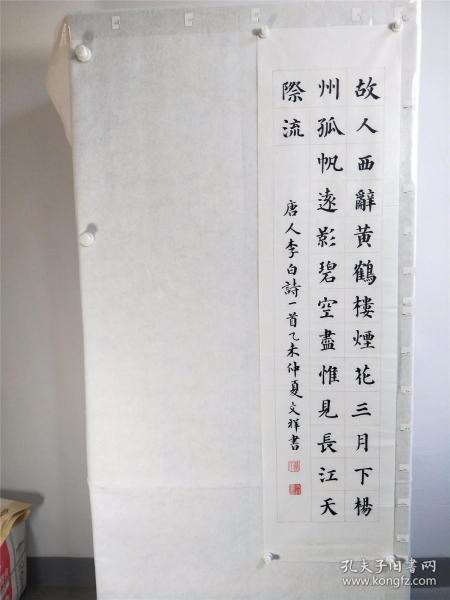 故人西辭黃鶴樓煙花三月下楊
州孤帆遠影碧空盡惟見長江天
際流
唐人李白詩一首乙未仲夏文祥書
孔夫子旧书网
www.kongfz.com